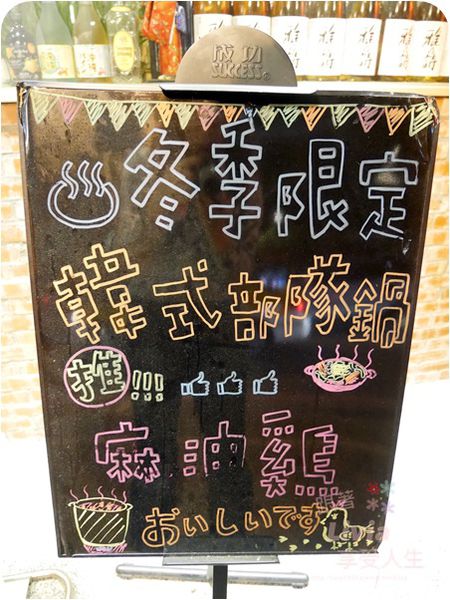 成功
SUCCESS
冬季限定
韓式部隊鍋
推!!!
麻油雞
おいしいです
跟著
享受人生